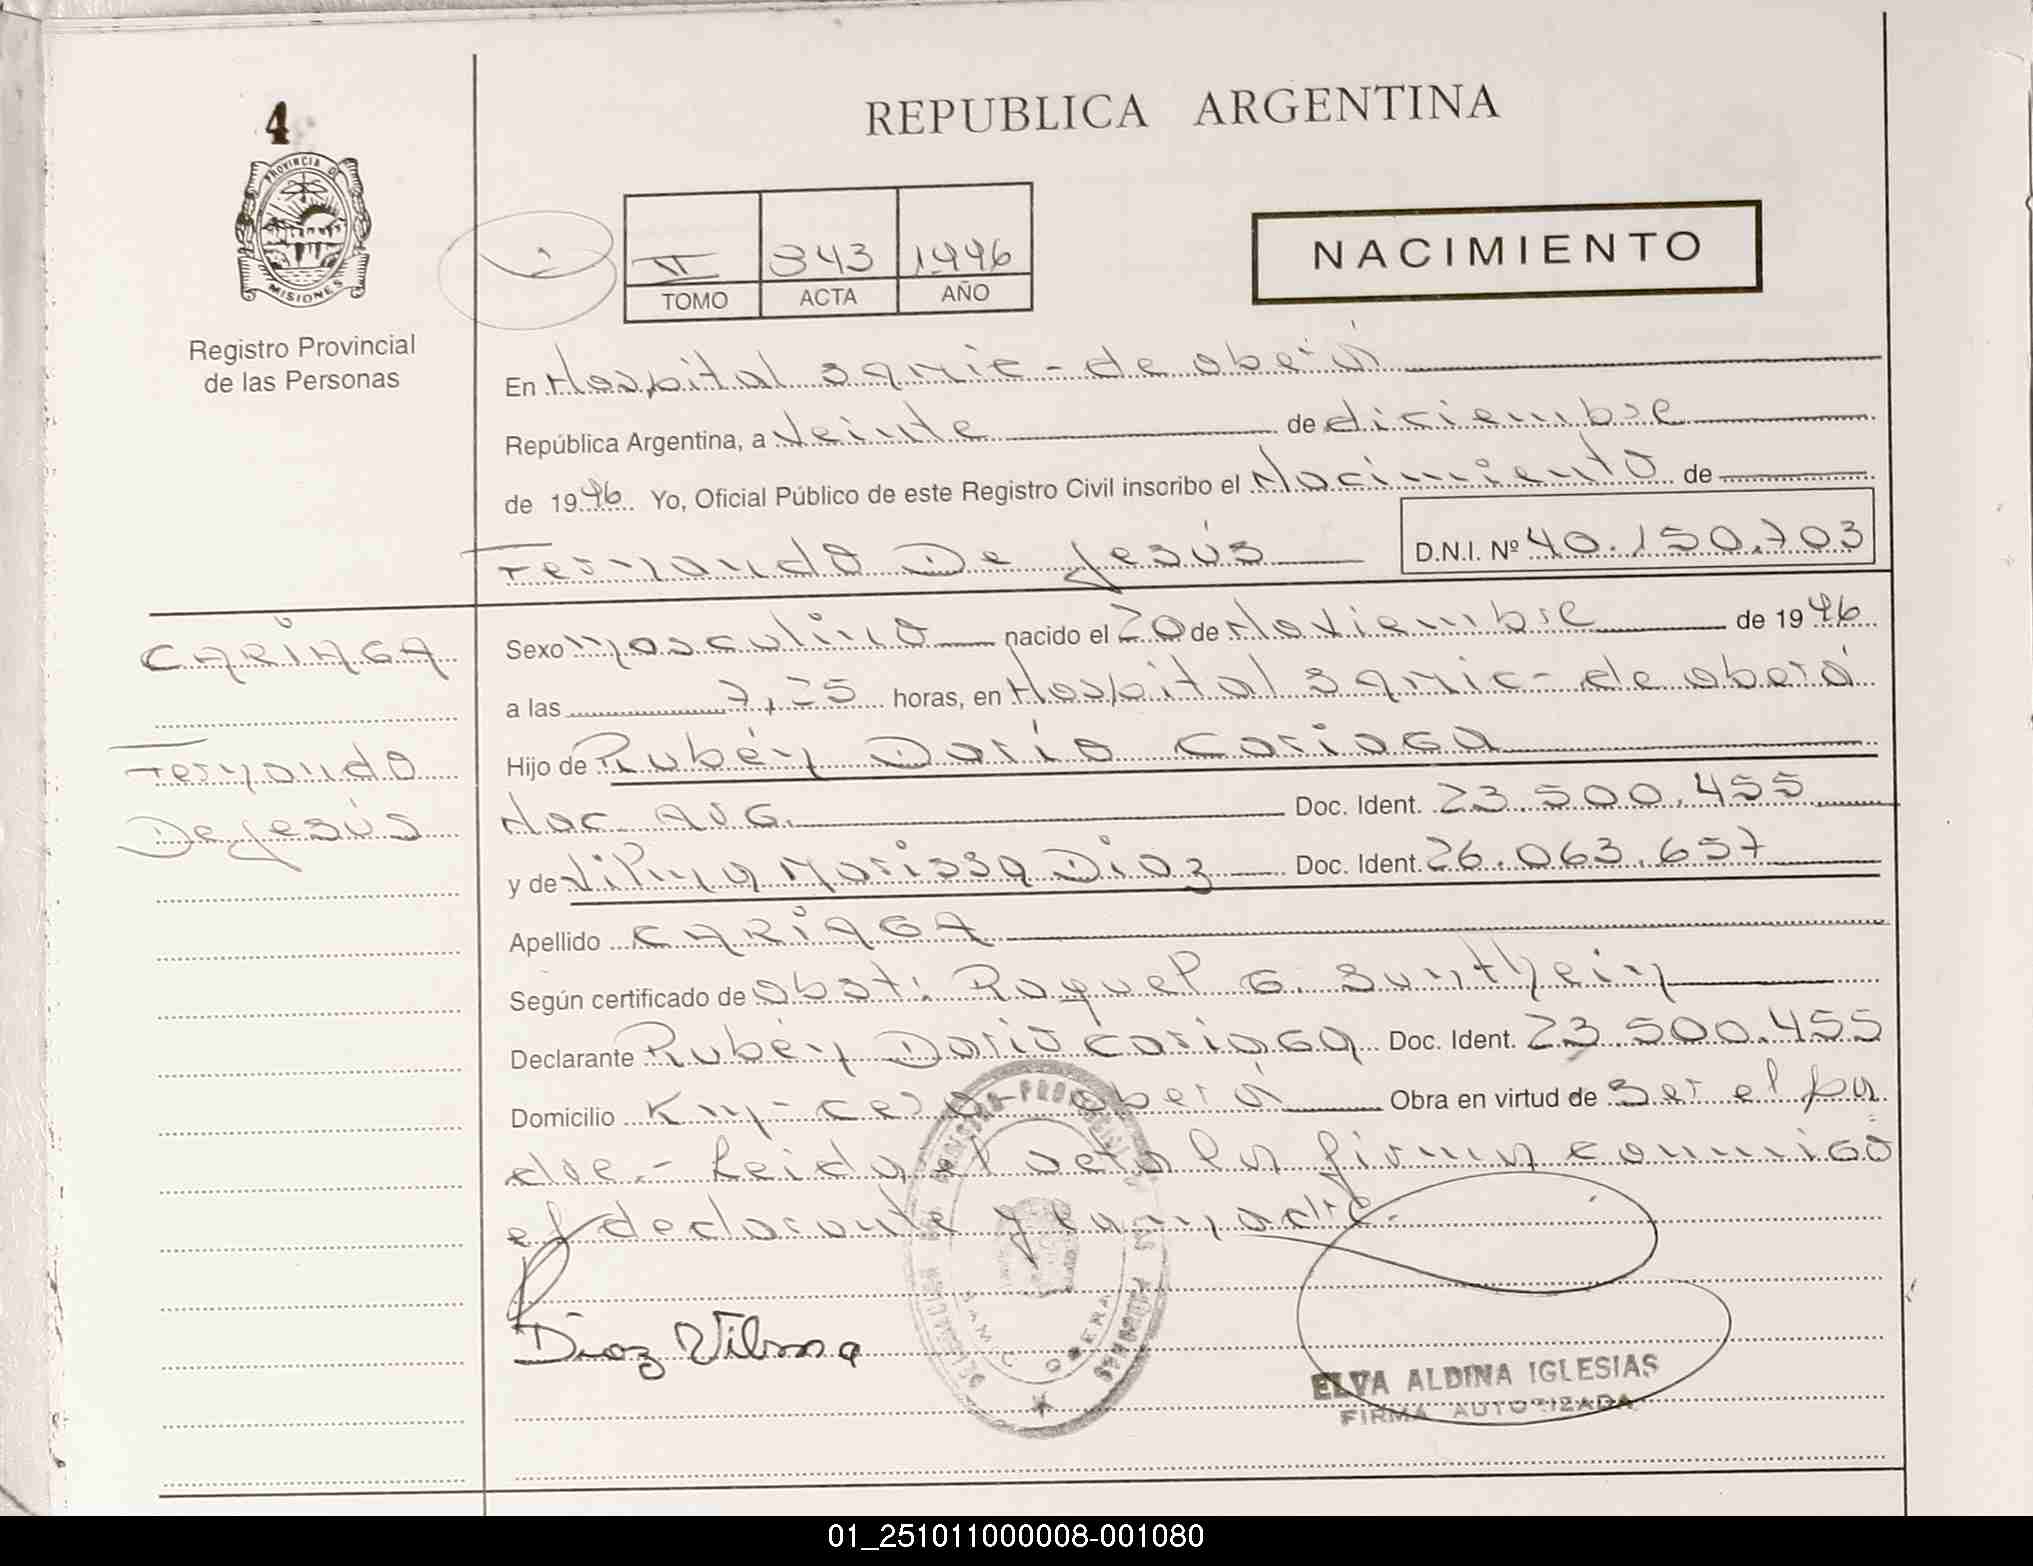 4
REPUBLICA ARGENTINA
PROVINCIA DE
MISIONES
Registro Provincial
de las Personas
II 343 1996
TOMO ACTA AÑO
NACIMIENTO
En Hospital Samic - de oberá
República Argentina, a Veinte de diciembre
de 1996. Yo, Oficial Público de este Registro Civil inscribo el Nacimiento de
Fernando De Jesús D.N.I. Nº 40.150.703
CARIAGA
Fernando
De Jesús
Sexo Masculino nacido el 20 de Noviembre de 1996
a las 7,25 horas, en Hospital Samic - de oberá
Hijo de Rubén Darío Cariaga
Nac. ARG. Doc. Ident. 23.500.455
y de Vilma Marissa Diaz Doc. Ident. 26.063.657
Apellido CARIAGA
Según certificado de obst: Raquel G. Sunthein
Declarante Rubén Dario Cariaga Doc. Ident. 23.500.455
Domicilio Km - oberá Obra en virtud de Ser el pa
dre.- Leida el acta la firma conmigo
el declarante y la madre.
Diaz Vilma
ELVA ALDINA IGLESIAS
FIRMA AUTORIZADA
01_251011000008-001080